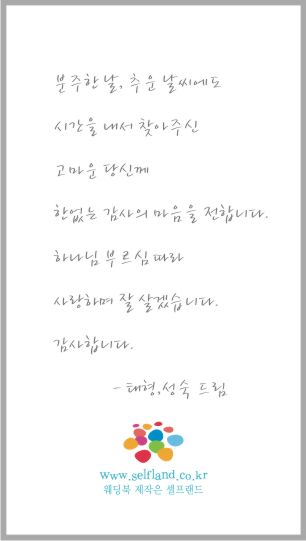 분주한 날, 추운 날씨에도
시간을 내서 찾아주신
고마운 당신께
한없는 감사의 마음을 전합니다.
하나님 부르심 따라
사랑하며 잘 살겠습니다.
감사합니다.
- 태형,성숙 드림
www.selfland.co.kr
웨딩북 제작은 셀프랜드